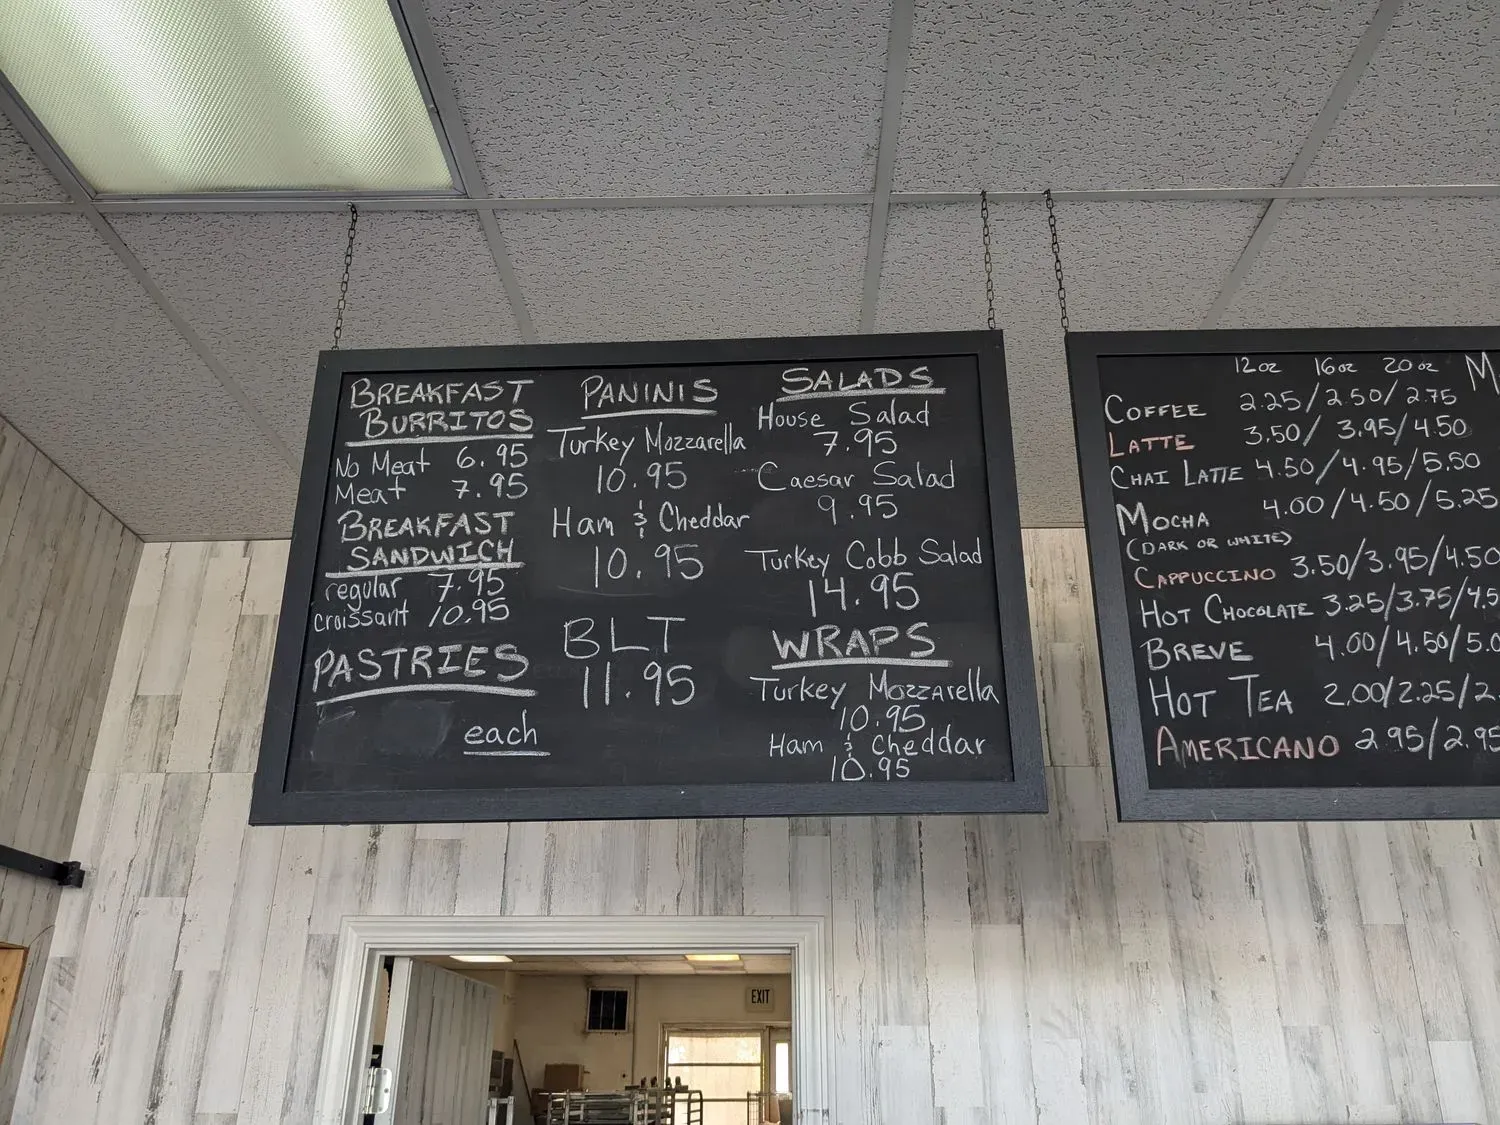 BREAKFAST
BURRITOS
No Meat 6.95
Meat 7.95
BREAKFAST
SANDWICH
regular 7.95
croissant 10.95
PASTRIES
each
PANINIS
Turkey Mozzarella
10.95
Ham & Cheddar
10.95
BLT
11.95
SALADS
House Salad
7.95
Caesar Salad
9.95
Turkey Cobb Salad
14.95
WRAPS
Turkey Mozzarella
10.95
Ham & Cheddar
10.95
12oz 16oz 20oz
COFFEE 2.25/2.50/2.75
LATTE 3.50/3.95/4.50
CHAI LATTE 4.50/4.95/5.50
MOCHA 4.00/4.50/5.25
(DARK OR WHITE)
CAPPUCCINO 3.50/3.95/4.50
HOT CHOCOLATE 3.25/3.75/4.5
BREVE 4.00/4.50/5.0
HOT TEA 2.00/2.25/2.
AMERICANO 2.95/2.95
EXIT